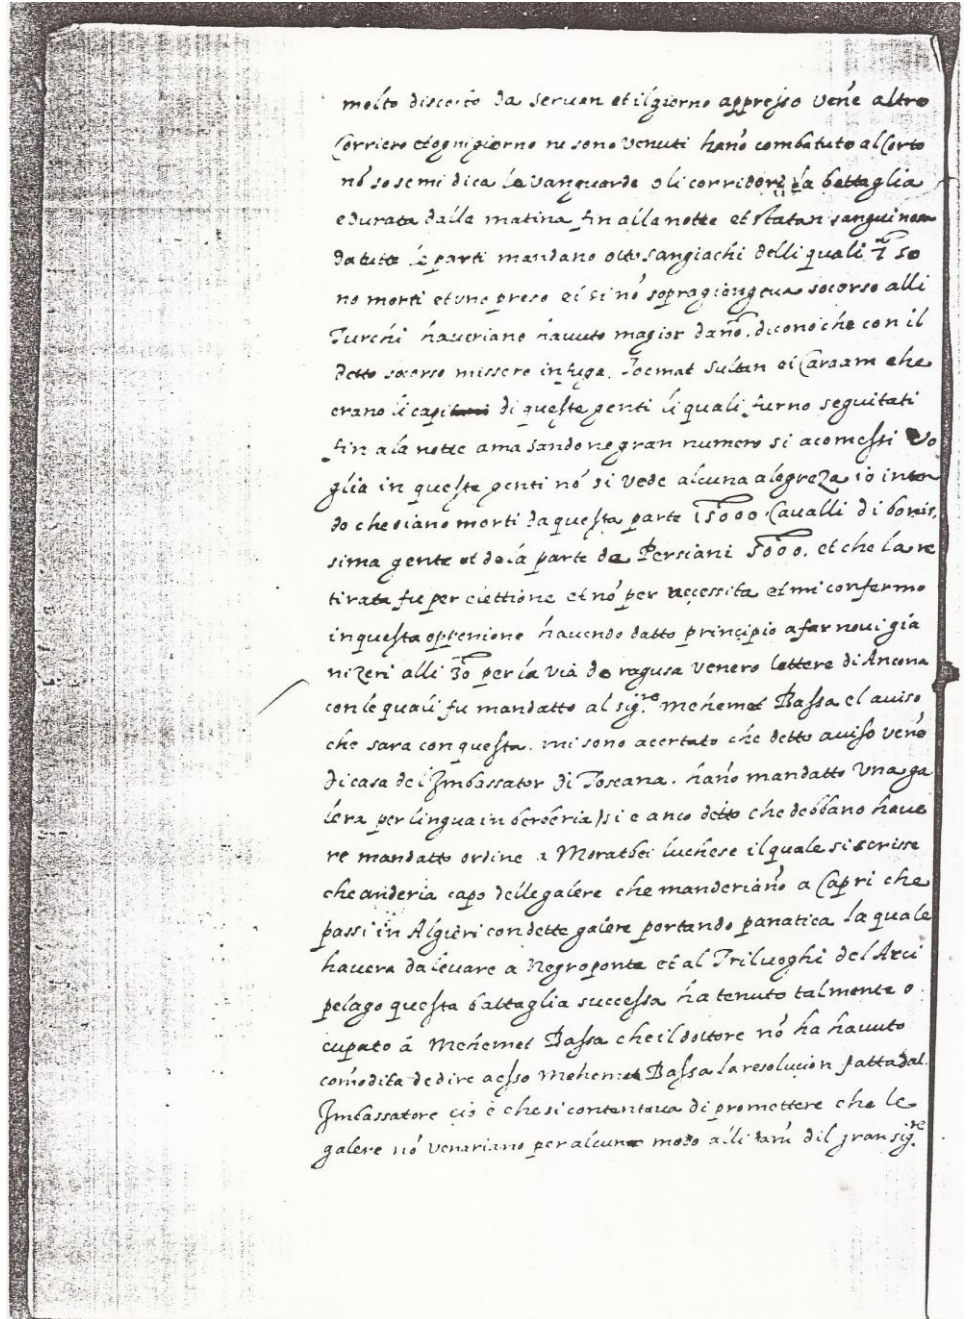 molto discosto da seruan et il giorno appresso vene altro
Corriero et ogni giorno ne sono venuti hano combatuto al Corto
nō so se mi dica le vanguarde o li corridori la battaglia
e durata dalla matina fin alla notte et stata sanguinosa
da tute le parti mandano otto sangiachi delli quali so
no morti et uno preso et si nō sopragiongeua socorso alli
Turchi haueriano hauuto magior dano. dicono che con il
detto socorso missero in fuga. Sultan et Caraam che
erano li capi di queste genti li quali furno seguitati
fin a la notte amasandone gran numero si a comessi vo
glia in queste genti nō si vede alcuna alegreza io inten
do che siano morti da questa parte 15000. Cavalli di bonis
sima gente et de la parte de Persiani 5000. et che la re
tirata fu per ellettione et nō per necessita et mi confermo
in questa oppenione hauendo datto principio a far noui gia
nizeri alli 30 per la via de ragusa venero lettere di Ancona
con le quali fu mandatto al sig.re mehemet Bassa el auiso
che sara con questa. mi sono acertato che detto auiso vene
di casa del Imbassator di Toscana. hano mandatto una ga
lera per lingua in berberia si e anco detto che debbano haue
re mandatto ordine a Moratbei luchese il quale si scrisse
che anderia capo delle galere che manderiano a Capri che
passi in Algieri con dette galere portando panatica la quale
hauera da leuare a Negroponte et al Triluoghi del Arci
pelago questa battaglia successa ha tenuto talmente o
cupato á Mehemet Bassa che il dottore nō ha hauuto
comodita de dire a esso Mehemet Bassa la resolucion fatta dal
Imbassatore cio è che si contentaua di promettere che le
galere nō venariano per alcuno modo alli dani dil gran sig.re